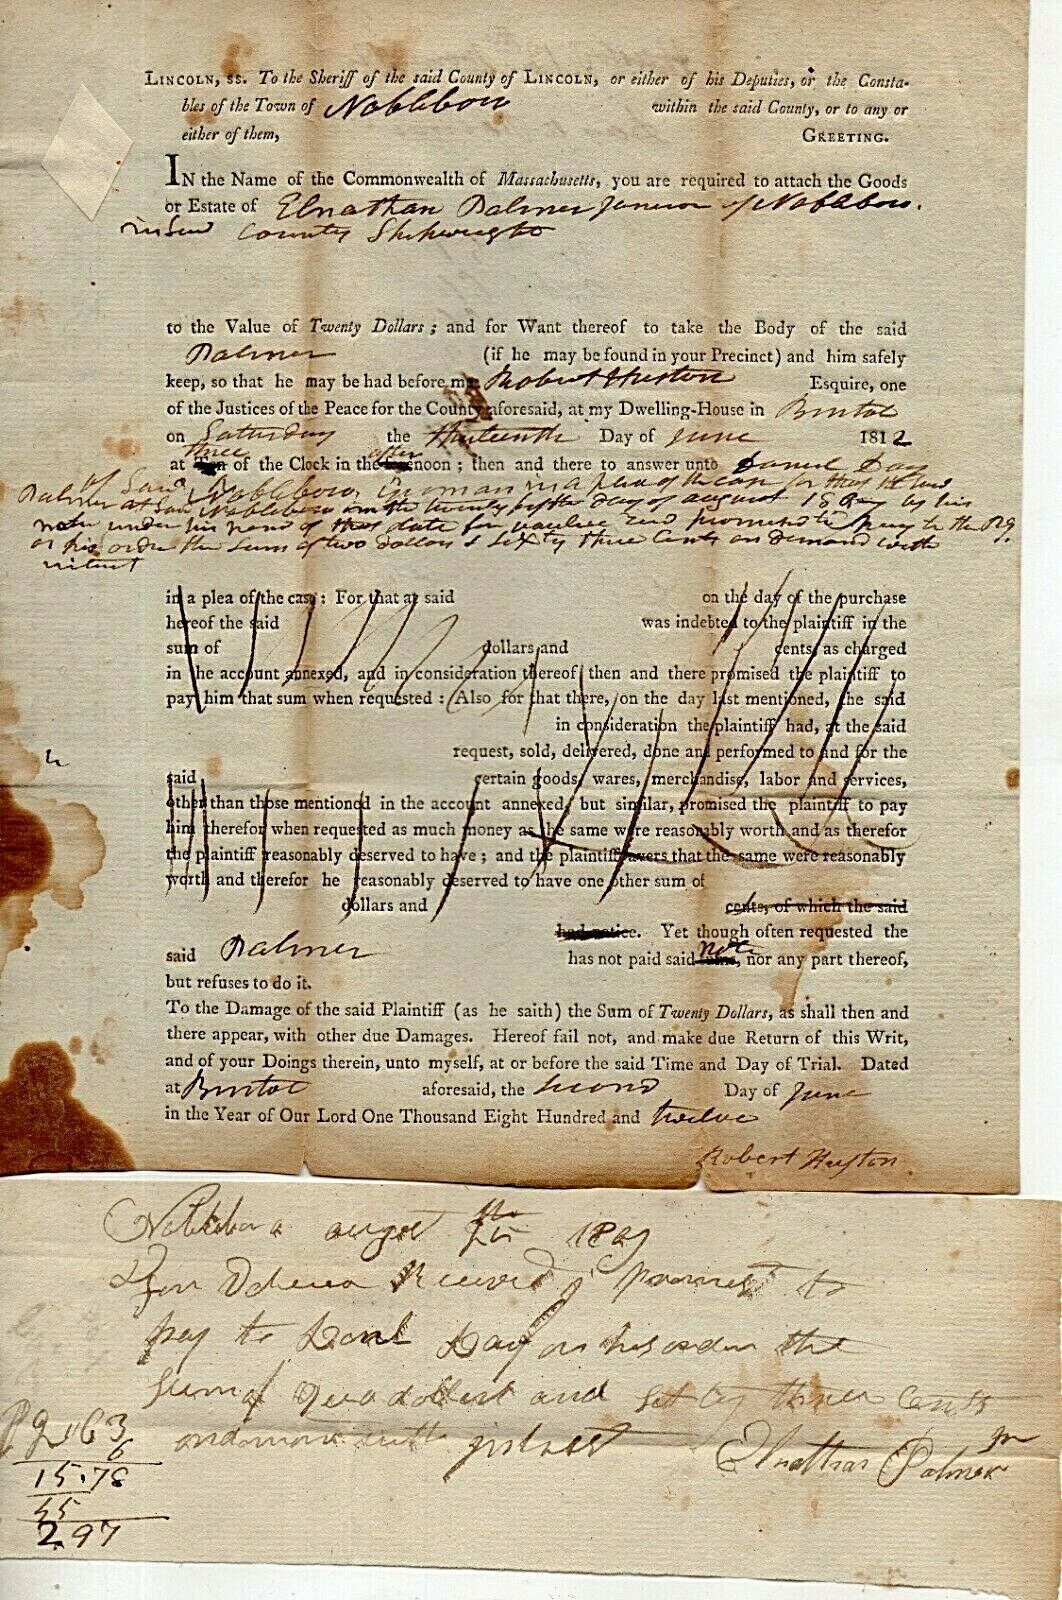 LINCOLN, ss. To the Sheriff of the said County of LINCOLN, or either of his Deputies, or the Consta-
bles of the Town of Nobleboro within the said County, or to any or
either of them, GREETING.
IN the Name of the Commonwealth of Massachusetts, you are required to attach the Goods
or Estate of Elnathan Palmer Junior of Nobleboro.
in said County Shipwright
to the Value of Twenty Dollars; and for Want thereof to take the Body of the said
Palmer (if he may be found in your Precinct) and him safely
keep, so that he may be had before me Robert Huston Esquire, one
of the Justices of the Peace for the County aforesaid, at my Dwelling-House in Bristol
on Saturday the thirteenth Day of June 1812
three after
at Ten of the Clock in the noon; then and there to answer unto Daniel Day
of said Nobleboro in a plea of the case for that the said
Palmer at said Nobleboro on the twenty fifth day of august by his
note under his hand of that date for value and promised to pay to the
or his order the sum of two dollars & sixty three Cents on demand with
intrest
in a plea of the case: For that at said on the day of the purchase
hereof the said was indebted to the plaintiff in the
sum of dollars and cents, as charged
in the account annexed, and in consideration thereof then and there promised the plaintiff to
pay him that sum when requested: Also for that there, on the day last mentioned, the said
in consideration the plaintiff had, at the said
request, sold, delivered, done and performed to and for the
said certain goods, wares, merchandise, labor and services,
other than those mentioned in the account annexed, but similar, promised the plaintiff to pay
him therefor when requested as much money as the same were reasonably worth and as therefor
the plaintiff reasonably deserved to have; and the plaintiff avers that the same were reasonably
worth and therefor he reasonably deserved to have one other sum of
dollars and cents, of which the said
had notice. Yet though often requested the
said Palmer has not paid said note, nor any part thereof,
but refuses to do it.
To the Damage of the said Plaintiff (as he saith) the Sum of Twenty Dollars, as shall then and
there appear, with other due Damages. Hereof fail not, and make due Return of this Writ,
and of your Doings therein, unto myself, at or before the said Time and Day of Trial. Dated
at Bristol aforesaid, the second Day of June
in the Year of Our Lord One Thousand Eight Hundred and twelve
Robert Huston
25 1809
Received to
pay to Danl Day or his order the
sum of and three Cents
Elnathan Palmer Jn
2.63
6
15.78
2.97